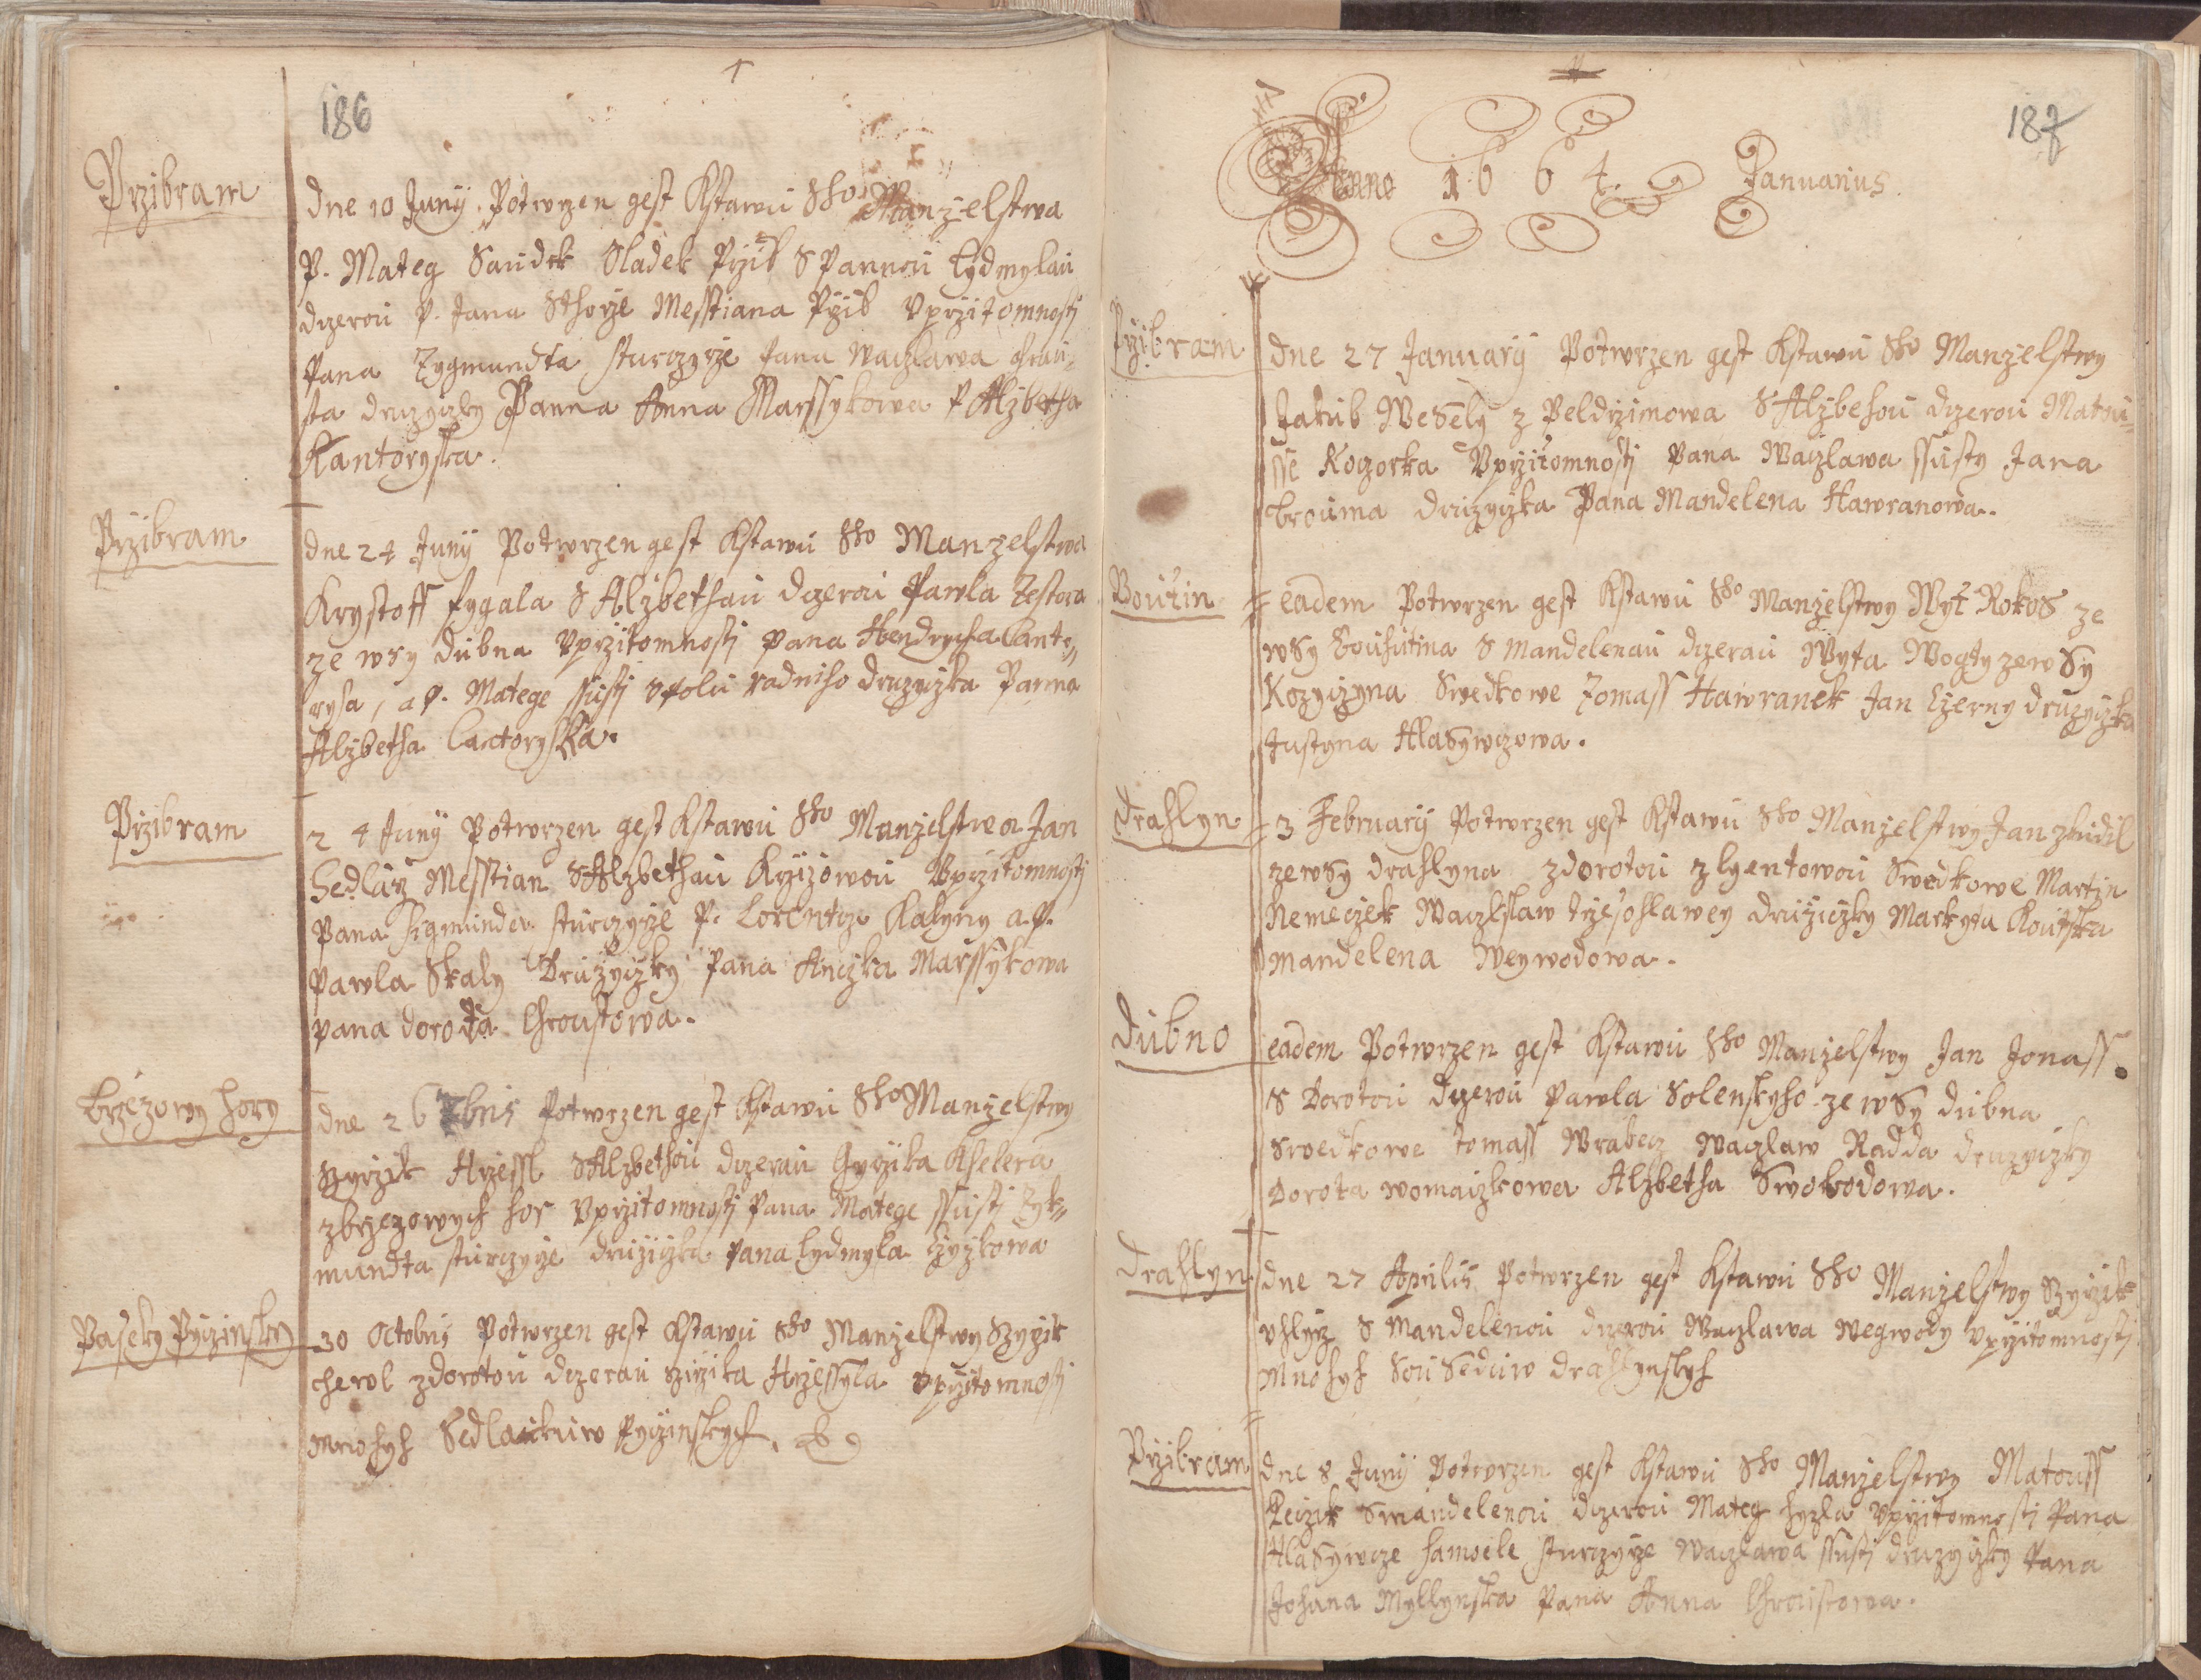 186
Przibram
dne 10 Junÿ. Potwrzen gest kstawu Sho Manzelstwa
P. Mateg Saudek Sladek Przib S Pannou Lydmylau
dczerou P. Jana Messtiana Przib Vprzitomnosti
Pana Zygmundta sturczyrze Pana Waczlawa chrau„
sta druzyczky Panna Anna Marssykowa P Alzbetha
Kantoryska.
Przibram
dne 24 Junÿ Potwrzen gest kstawu Sho Manzelstwa
Krystoff fygala S Alzbethau dczerau Pawla
ze wsy dubna Vprzitomnosti Pana Hendrycha Canto„
ryha, a P. Matege ssusti spolu radniho druzyczka Panna
Alzbetha Cantoryska.
Przibram
24 Junÿ Potwrzen gest kstawu Sho Manzelstwa Jan
Sedlarz Messtian S Alzbethau Krzizowou Vprzitomnosti
Pana Sigmunda sturczyrze P. Lorentze Kalyny a P.
Pawla Skaly Druzyczky Pana Anczka Marssykowa
Pana dorota Chroustowa.
Brzezowy hory
dne 26 7bris Potwrzen gest kstawu Sho Manzelstwy
Szyrzik Hrzessl S Alzbethou dczerau Gyrzika Khelera
z brzezowych hor Vprzitomnosti Pana Matege ssusti Zyk„
mundta sturczyrze druzyczka Pana Lydmyla Czyzkowa
Paseky Pyczinsky
30 Octobris Potwrzen gest kstawu Sho Manzelstwy Szyrzik
cherol z dorotou dczerau Szirzika Hrzessyla Vprzitomnosti
mnohyh Sedlackuw Pyczinskych.
187
Anno 1664. Januarius.
Przibram
dne 27 Januarÿ Potwrzen gest kstawu Sho Manzelstwy
Jakub Wesely z Peldrzimowa S Alzbehou dczerou Matau„
sse Kogorka Vprzitomnosti Pana Waczlawa ssusty Jana
brouma druzyczka Pana Mandelena Hawranowa.
Boutin
eadem Potwrzen gest kstawu Sho Manzelstwy Wyt Rokos ze
wsy bouhutina S Mandelenau dczerau Wyta Wogty ze wsy
Kozyczyna Swedkowe Tomass Hawranek Jan Czerny druzyczka
Justyna Hlasywczowa.
Drahlyn
3 Februarÿ Potwrzen gest kstawu Sho Manzelstwy Jan zkudil
ze wsy drahlyna z dorotou z lyentowou Swedkowe Martin
Nemeczek Waczslaw druzyczky Markyta Koutska
Mandelena Weywodowa.
Dubno
eadem Potwrzen gest kstawu Sho Manzelstwy Jan Jonass
S Dorotou dczerou Pawla Solenskyho ze wsy dubna
Swedkowe tomass Wrabecz Waczlaw Radda druzyczky
Dorota womaczkowa Alzbetha Swobodowa.
Drahlyn
dne 27 Aprilis Potwrzen gest kstawu Sho Manzelstwy Szyrzik
vhlyrz S Mandelenou dczerou Waczlawa wegwody Vprzitomnosti
Mnohyh Souseduw drahlynskyh
Przibram
dne 8 Junÿ Potwrzen gest kstawu Sho Manzelstwy Matouss
S mandelenou dczerou Mateg hyzla Vprzitomnosti Pana
Hlasywcze Samuele sturczyrze Waczlawa ssusti druzyczky Pana
Johana Myllynska Pana Anna Chraustowa.